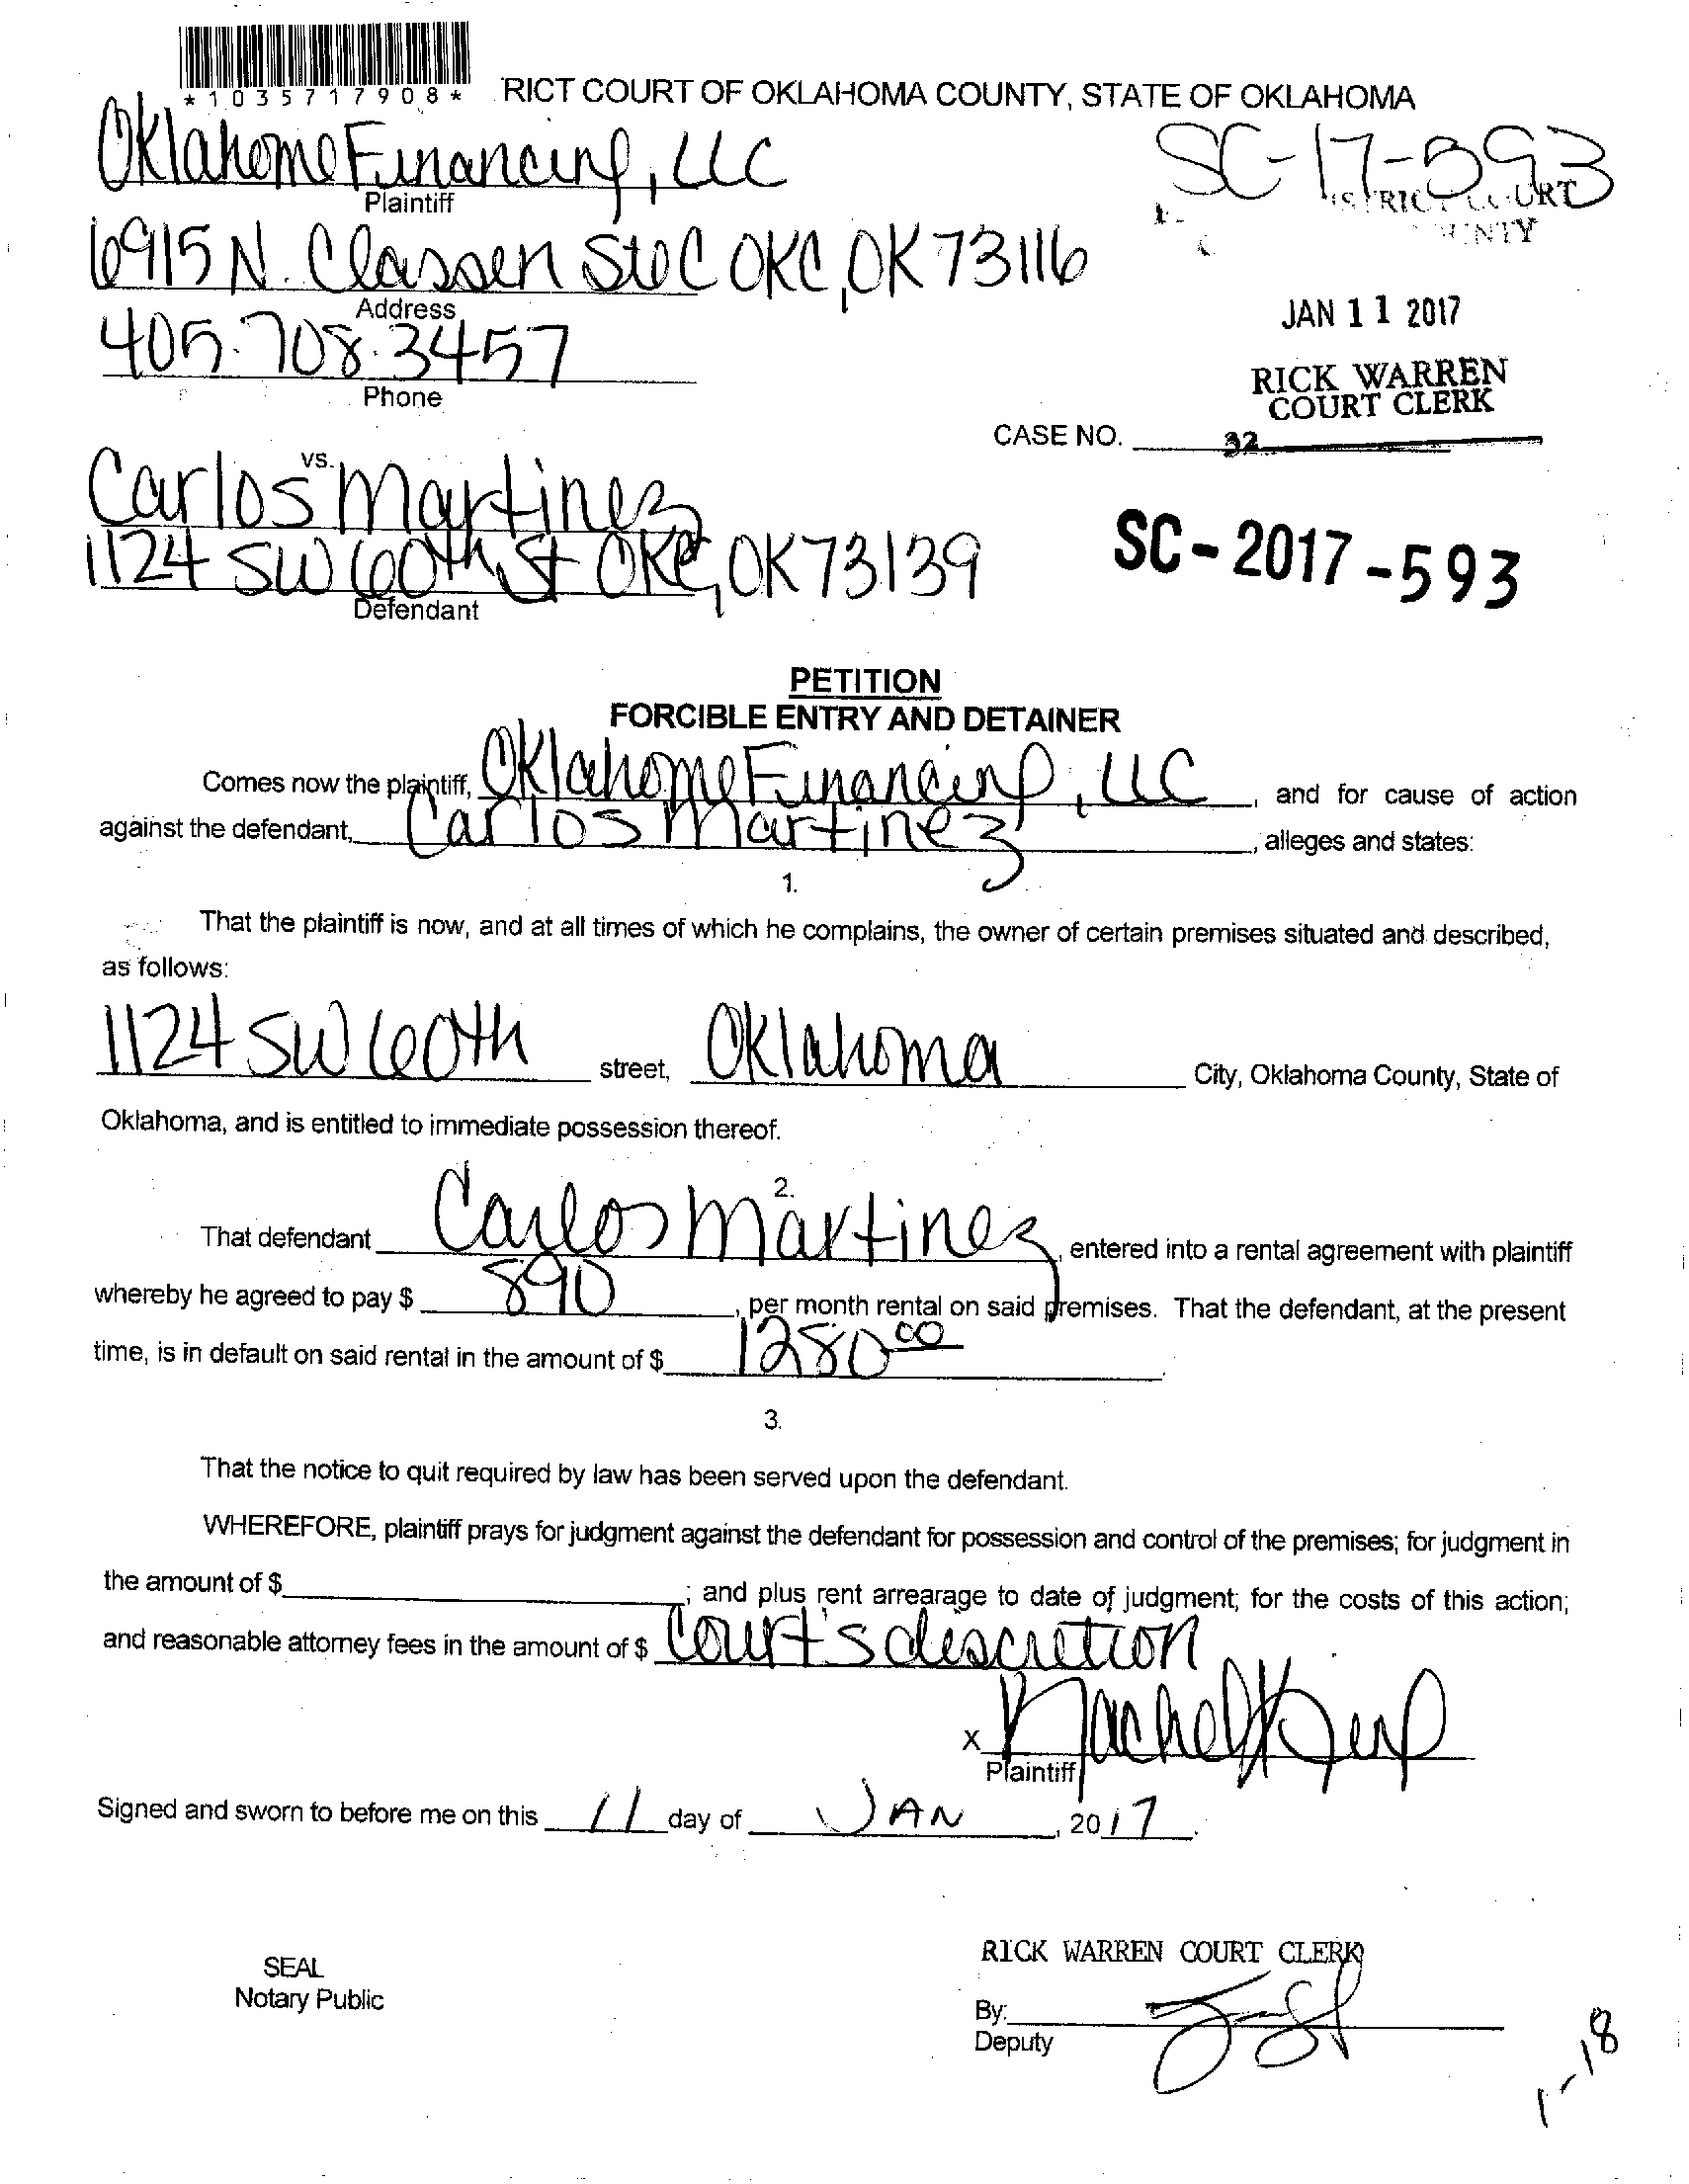 *1035717908*
RICT COURT OF OKLAHOMA COUNTY, STATE OF OKLAHOMA
OklahomeFinancing, LLC
Plaintiff
SC-17-593
6915 N. Classen Ste C OKC, OK 73116
Address
405.708.3457
Phone
JAN 11 2017
RICK WARREN
COURT CLERK
CASE NO.
32
vs.
Carlos Martinez
1124 SW 60th St OKC, OK 73139
Defendant
SC-2017-593
PETITION
FORCIBLE ENTRY AND DETAINER
Comes now the plaintiff, OklahomeFinancing, LLC, and for cause of action
against the defendant, Carlos Martinez, alleges and states:
1.
That the plaintiff is now, and at all times of which he complains, the owner of certain premises situated and described,
as follows:
1124 SW 60th street, Oklahoma City, Oklahoma County, State of
Oklahoma, and is entitled to immediate possession thereof.
2.
That defendant Carlos Martinez, entered into a rental agreement with plaintiff
whereby he agreed to pay $ 890, per month rental on said premises. That the defendant, at the present
time, is in default on said rental in the amount of $ 1280 00.
3.
That the notice to quit required by law has been served upon the defendant.
WHEREFORE, plaintiff prays for judgment against the defendant for possession and control of the premises; for judgment in
the amount of $; and plus rent arrearage to date of judgment; for the costs of this action;
and reasonable attorney fees in the amount of $ Court's discretion
X Rachel
Plaintiff
Signed and sworn to before me on this 11 day of JAN, 2017.
SEAL
Notary Public
RICK WARREN COURT CLERK
By:
Deputy
1-18